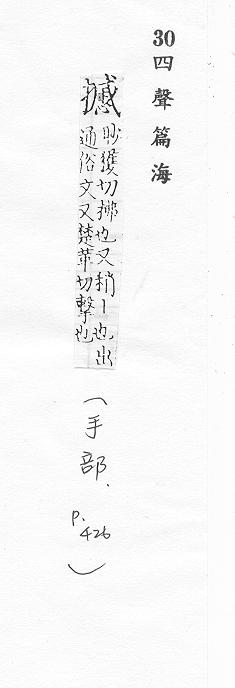 30 四聲篇海
砂獲切拂也又稍丨也出
通俗文又楚革切擊也
(手部. P.426)